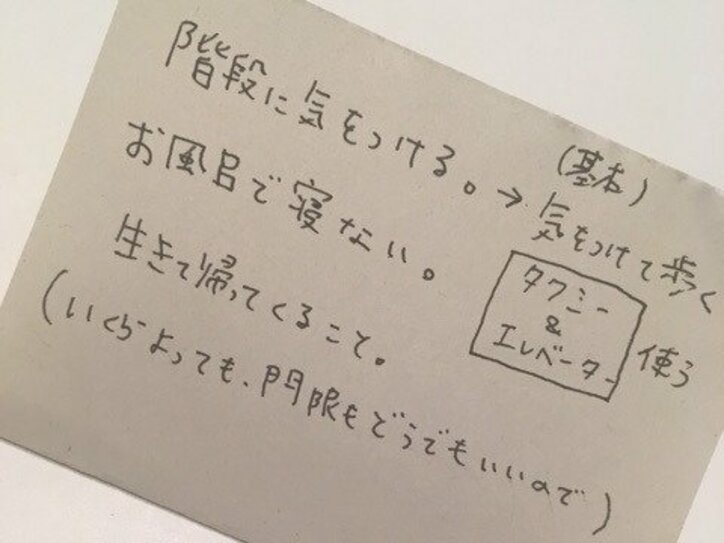 階段に気をつける。→(基本)気をつけて歩く
タクシー
&
エレベーター
使う
お風呂で寝ない。
生きて帰ってくること。
(いくらよっても、門限もどうでもいいので)